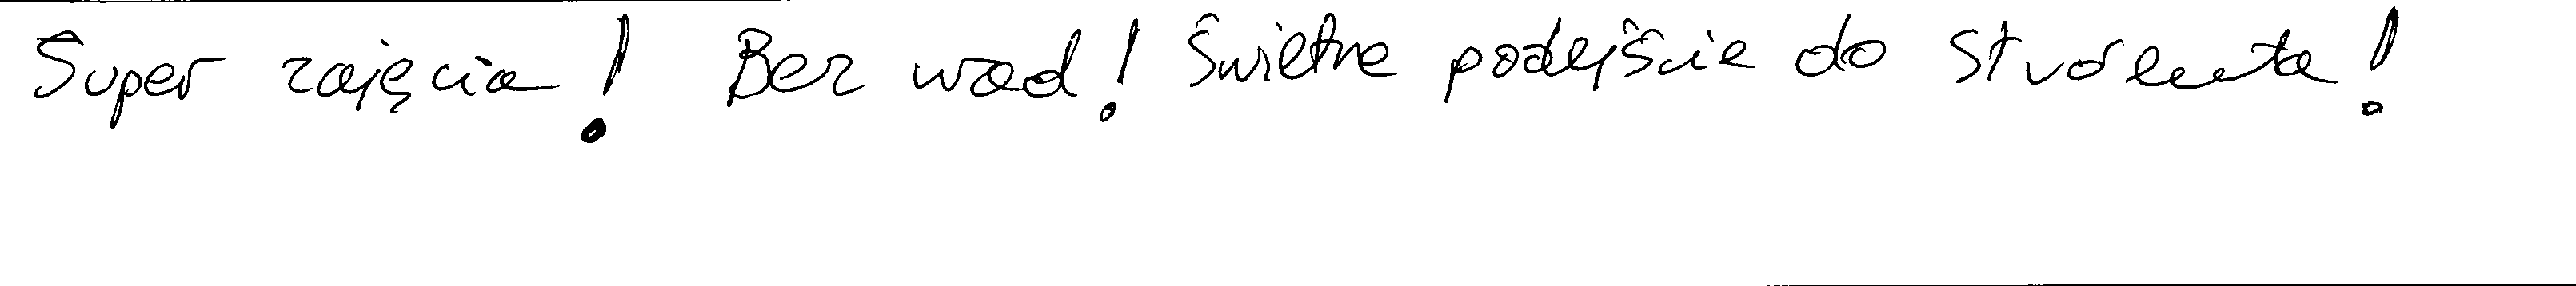 Super zajęcia! Bez wad! Świetne podejście do studenta!